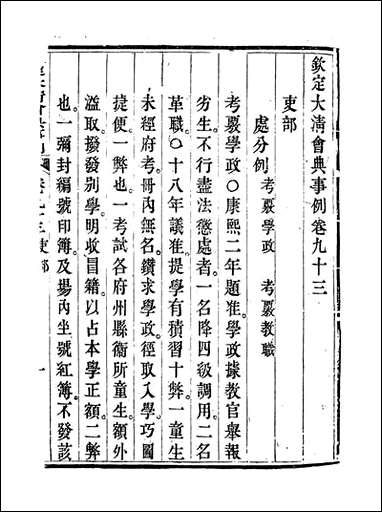 欽定大清會典事例卷九十三
吏部
處分例 考覈學政 考覈教職
考覈學政○康熙二年題准學政據教官舉報
劣生不行盡法懲處者一名降四級調用二名
革職○十八年議准提學有積習十弊一童生
未經府考冊內無名鑽求學政徑取入學巧圖
捷便一弊也一考試各府州縣衞所童生額外
溢取撥發別學明收冒籍以占本學正額二弊
也一彌封編號印簿及場內坐號紅簿不發該
卷九十三 吏部
一